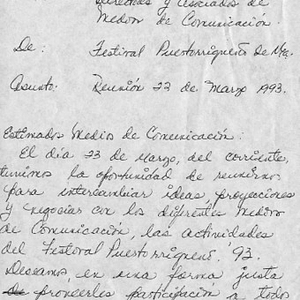 Directores y Asociados de
Medios de Comunicación.
De: Festival Puertorriqueño de
Asunto: Reunión 23 de Marzo 1993.
Estimados Medios de Comunicación:
El día 23 de Marzo, del corriente,
tuvimos la oportunidad de reunirnos
para intercambiar ideas proyecciones
y negociar con los diferentes medios
de Comunicación, las actividades
del Festival Puertorriqueño '93.
Deseamos, en una forma justa
proveerles participación a todos